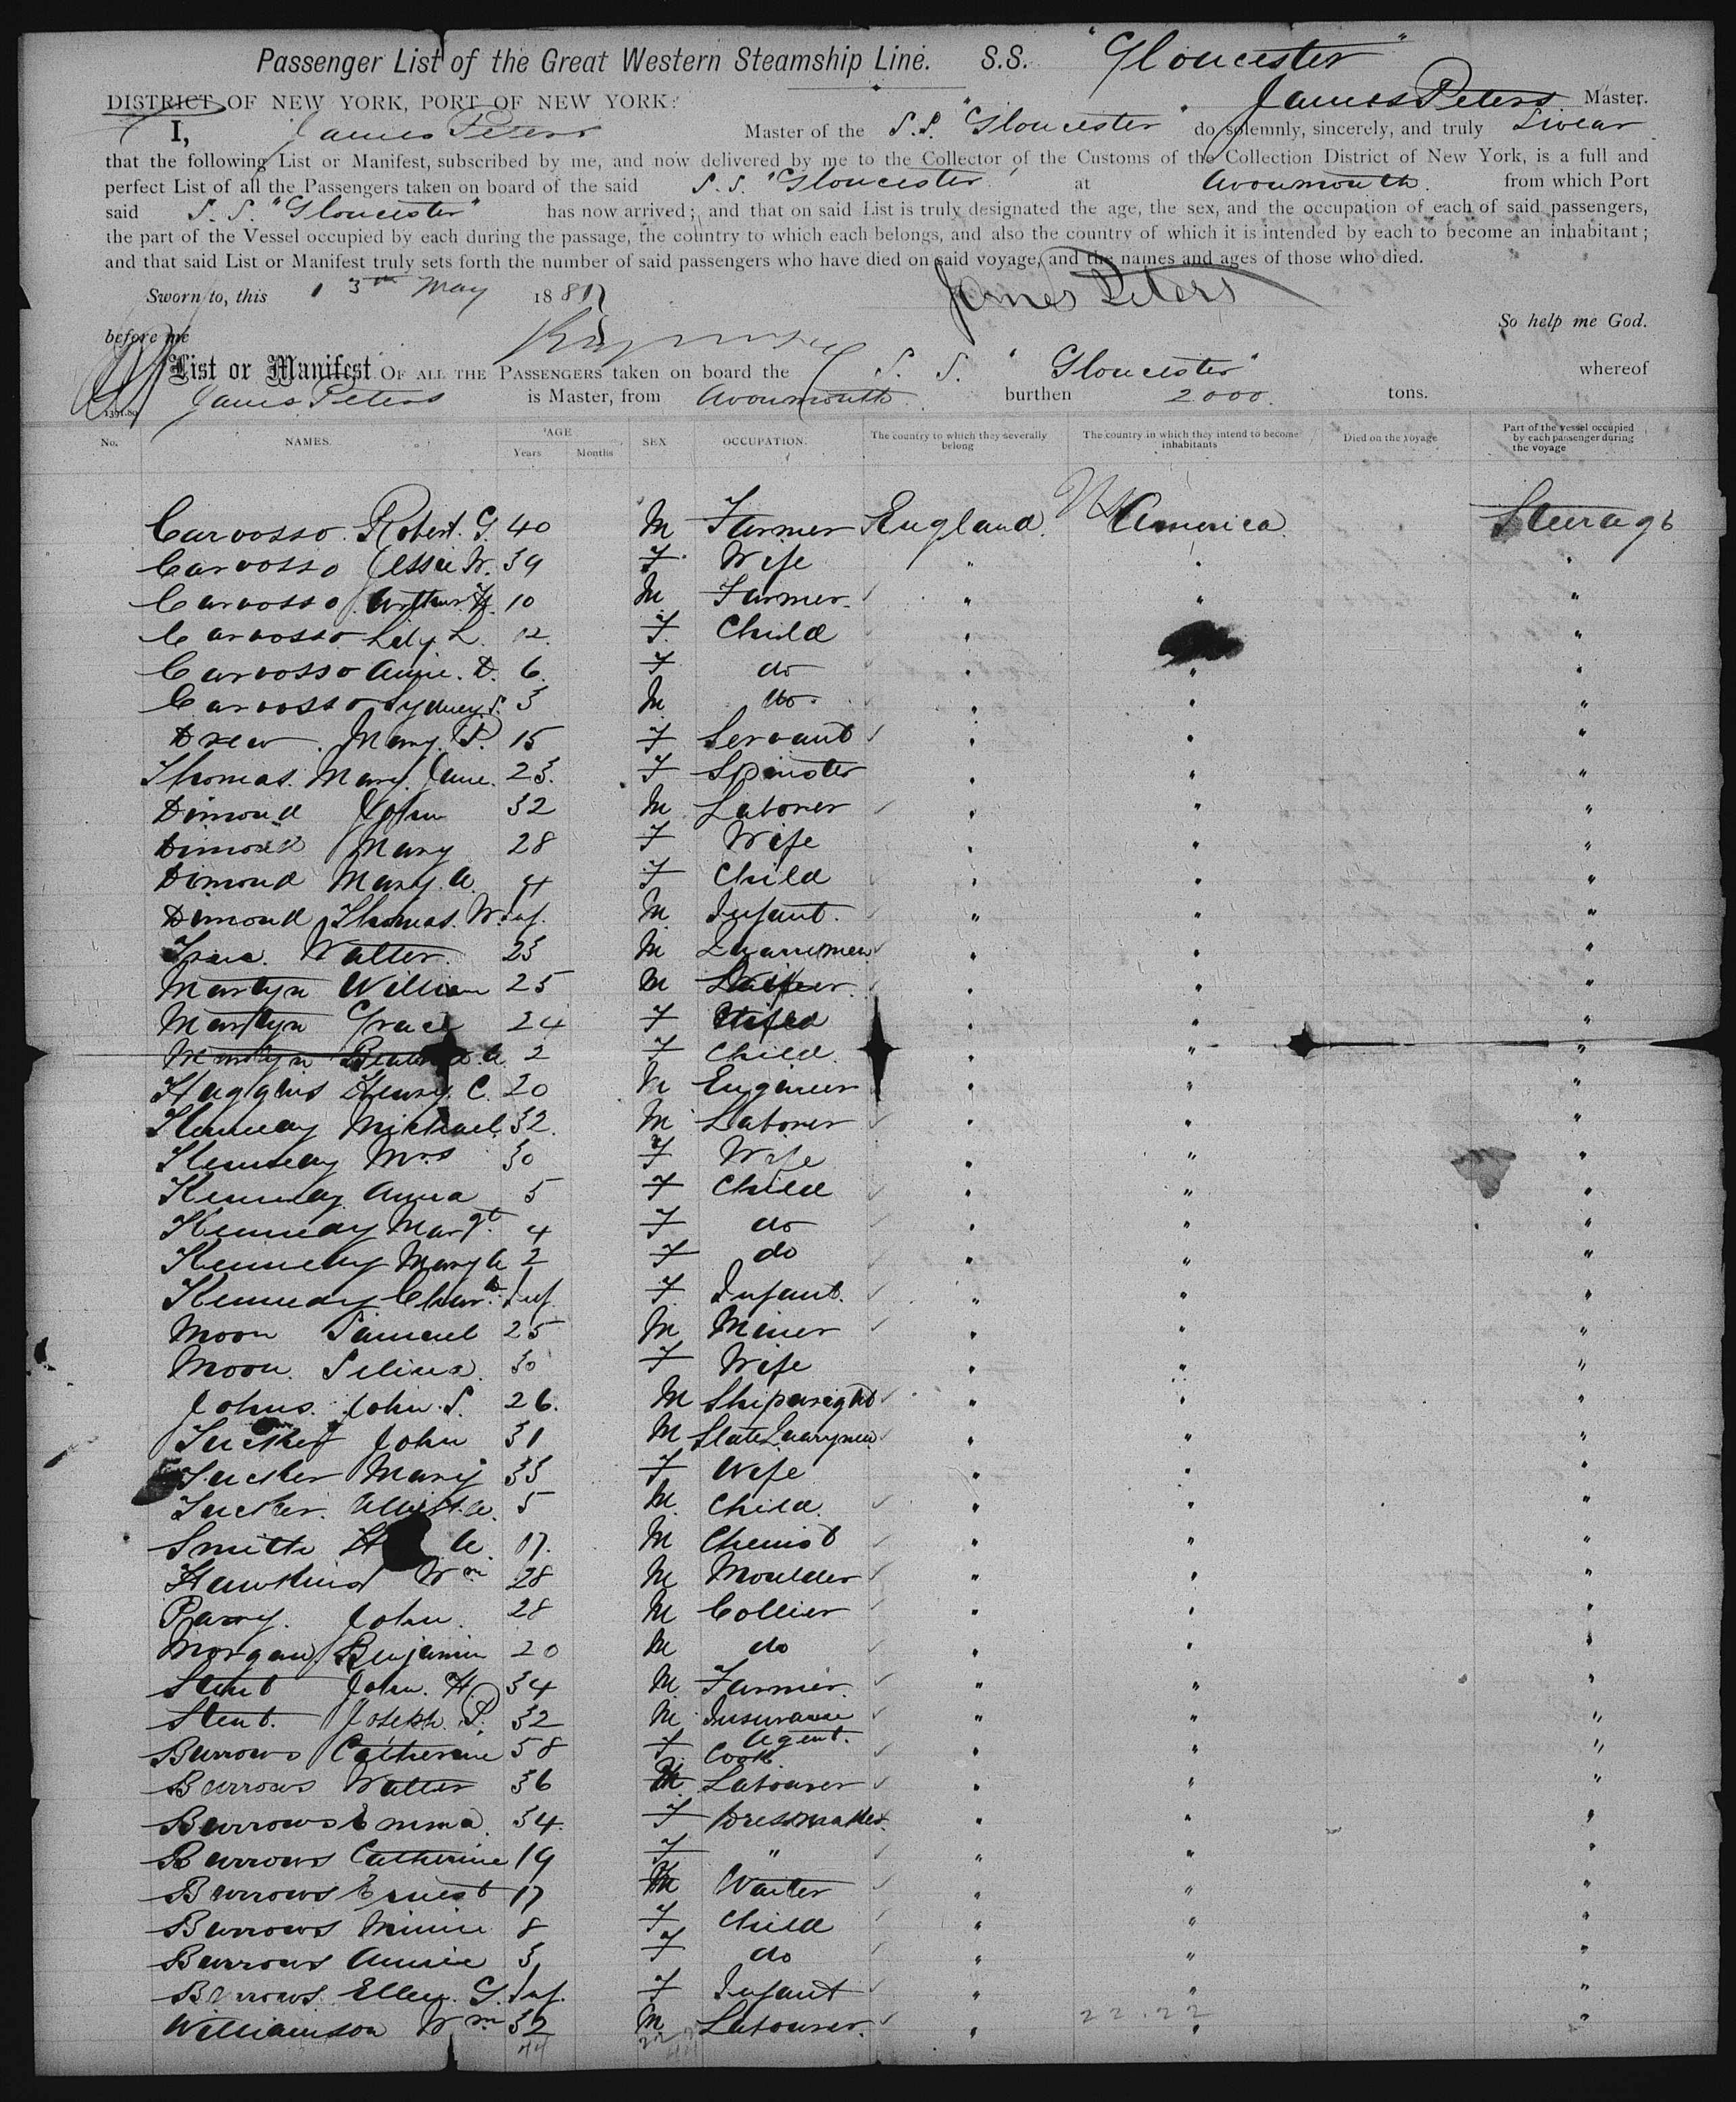 Passenger List of the Great Western Steamship Line. S.S. "Gloucester"
DISTRICT OF NEW YORK, PORT OF NEW YORK: James Peters Master.
I, James Peters Master of the S.S. "Gloucester" do solemnly, sincerely, and truly Swear
that the following List or Manifest, subscribed by me, and now delivered by me to the Collector of the Customs of the Collection District of New York, is a full and
perfect List of all the Passengers taken on board of the said S.S. "Gloucester" at Avonmouth. from which Port
said S.S. "Gloucester" has now arrived; and that on said List is truly designated the age, the sex, and the occupation of each of said passengers,
the part of the Vessel occupied by each during the passage, the country to which each belongs, and also the country of which it is intended by each to become an inhabitant;
and that said List or Manifest truly sets forth the number of said passengers who have died on said voyage, and the names and ages of those who died.
Sworn to, this 13th May 1881 James Peters
before me So help me God.
List or Manifest OF ALL THE PASSENGERS taken on board the S. S. "Gloucester" whereof
James Peters is Master, from Avonmouth burthen 2000. tons.
No. NAMES. AGE Years Months SEX OCCUPATION. The country to which they severally belong The country in which they intend to become inhabitants Died on the voyage Part of the vessel occupied by each passenger during the voyage
Carvosso. Robert. G. 40 M Farmer England. America. Steerage
Carvosso Jessie W. 39 F. Wife " " "
Carvosso Arthur H. 10 M Farmer. " " "
Carvosso Lily L. 12. F. Child " "
Carvosso Annie. D. 6. F do " " "
Carvosso Sydney. S. 3 M do. " " "
Drew. Mary. P. 15 F Servant " " "
Thomas. Mary. Jane. 23. F Spinster " " "
Dimond John 32 M Laborer " " "
Dimond Mary 28 F Wife " " "
Dimond Mary. A. 4 F Child " " "
Dimond Thomas. W. Inf. M Infant. " " "
Walter. 23 M Quarrymen " " "
Martyn William 25 M " " "
Martyn Grace 24 F " " "
Martyn A 2 F Child. " " "
Huggins Henry. C. 20 M Engineer " " "
Kennedy Michael. 32. M Laborer " " "
Kennedy Mrs 30 F Wife " " "
Kennedy. Anna 5 F Child " " "
Kennedy Margt. 4 F do " " "
Kennedy Mary A 2 F do " " "
Kennedy Inf. F. Infant. " " "
Moon Samuel 25 M Miner " " "
Moon. Selina. 30 F Wife " " "
Johns. John. S. 26. M Shipwright " " "
Tucker John 31 M Slate Quarrymen " " "
Tucker Mary 33 F Wife " " "
Tucker. Albert. A. 5 M. Child. " " "
Smith H A. 17. M Chemist " " "
Hawkins Wm 28 M Moulder " " "
Parry. John. 28 M Collier " " "
Morgan Benjamin 20 M do " " "
Stent John. H. 34 M. Farmer. " " "
Stent. Joseph. P. 32 M. Insurance Agent. " " "
Burrows Catherine 58 F. Cook " " "
Burrows Walter 36 M. Labourer " " "
Burrows Emma. 34. F Dressmaker. " " "
Burrows Catherine 19 F " " " "
Burrows Ernest 17 M Waiter " " "
Burrows Minnie 8 F Child " " "
Burrows Annie 3 F do " " "
Burrows. Ellen. G. Inf. F Infant " " "
Williamson Wm 32 M Labourer. " " "
44 22.22